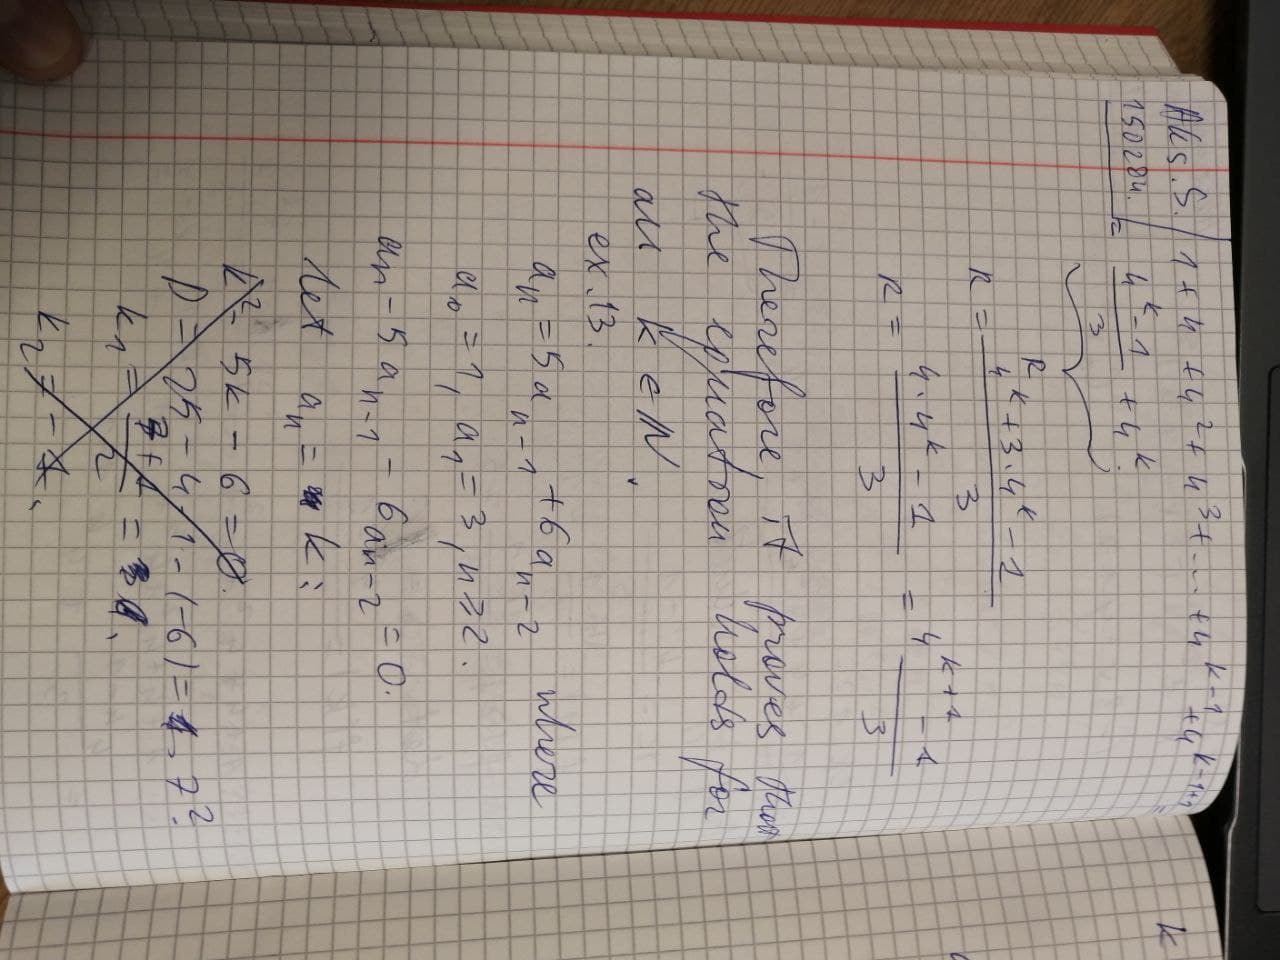 Aks. S. 1 + 4 + 4² + 4³ + ... + 4^{k-1} + 4^{k-1+1} =
150284. = \frac{4^k - 1}{3} + 4^k.
R
R = \frac{4^k + 3·4^k - 1}{3}
R = \frac{4·4^k - 1}{3} = \frac{4^{k+1} - 1}{3}
Therefore, it proves that
the equation holds for
all k ∈ N.
ex. 13.
a_n = 5a_{n-1} + 6a_{n-2} where
a_0 = 1, a_1 = 3, n ≥ 2.
a_n - 5a_{n-1} - 6a_{n-2} = 0.
let a_n = k:
k² - 5k - 6 = 0.
D = 25 - 4·1·(-6) = 7².
k_1 = \frac{7+}{2} =
k_2 = -
k